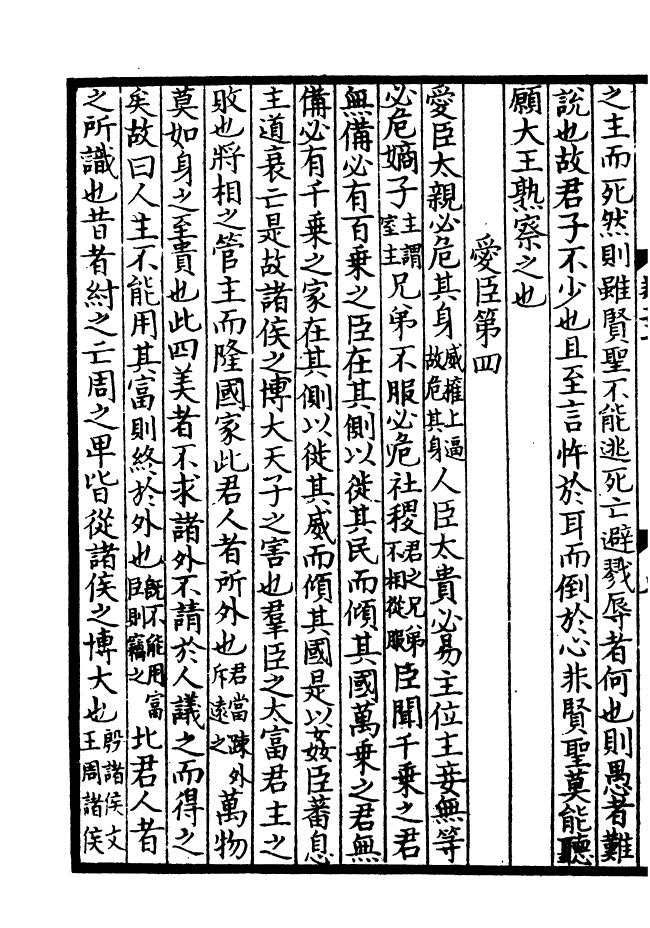 之主而死然則雖賢聖不能逃死亡避戮辱者何也則愚者難
說也故君子不少也且至言忤於耳而倒於心非賢聖莫能聽
願大王熟察之也
愛臣第四
愛臣太親必危其身威權上逼故危其身人臣太貴必易主位主妾無等
必危嫡子主謂室主兄弟不服必危社稷君之兄弟不相從服臣聞千乘之君
無備必有百乘之臣在其側以徙其民而傾其國萬乘之君無
備必有千乘之家在其側以徙其威而傾其國是以姦臣蕃息
主道衰亡是故諸侯之博大天子之害也羣臣之太富君主之
敗也將相之管主而隆國家此君人者所外也君當疎外斥遠之萬物
莫如身之至貴也此四美者不求諸外不請於人議之而得之
矣故曰人主不能用其富則終於外也既不能用富臣則竊之此君人者
之所識也昔者紂之亡周之卑皆從諸侯之博大也殷諸侯文王周諸侯